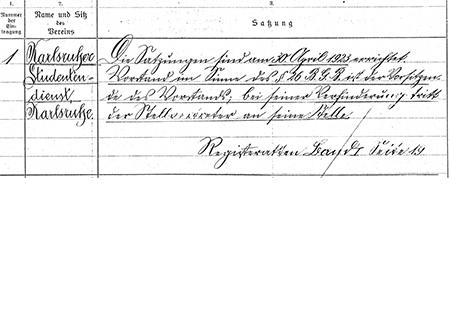 1.
2.
3.
Nummer
der Ein-
tragung
Name und Sitz
des
Vereins
Satzung
1
Karlsruher
Studenten-
dienst,
Karlsruhe.
Die Satzungen sind am 30 April 1923 errichtet.
Vorstand im Sinne des § 26 B.G.B. ist der Vorsitzen-
de des Vorstands; bei seiner Verhinderung tritt
der Stellvertreter an seine Stelle.
Registerakten Band Seite